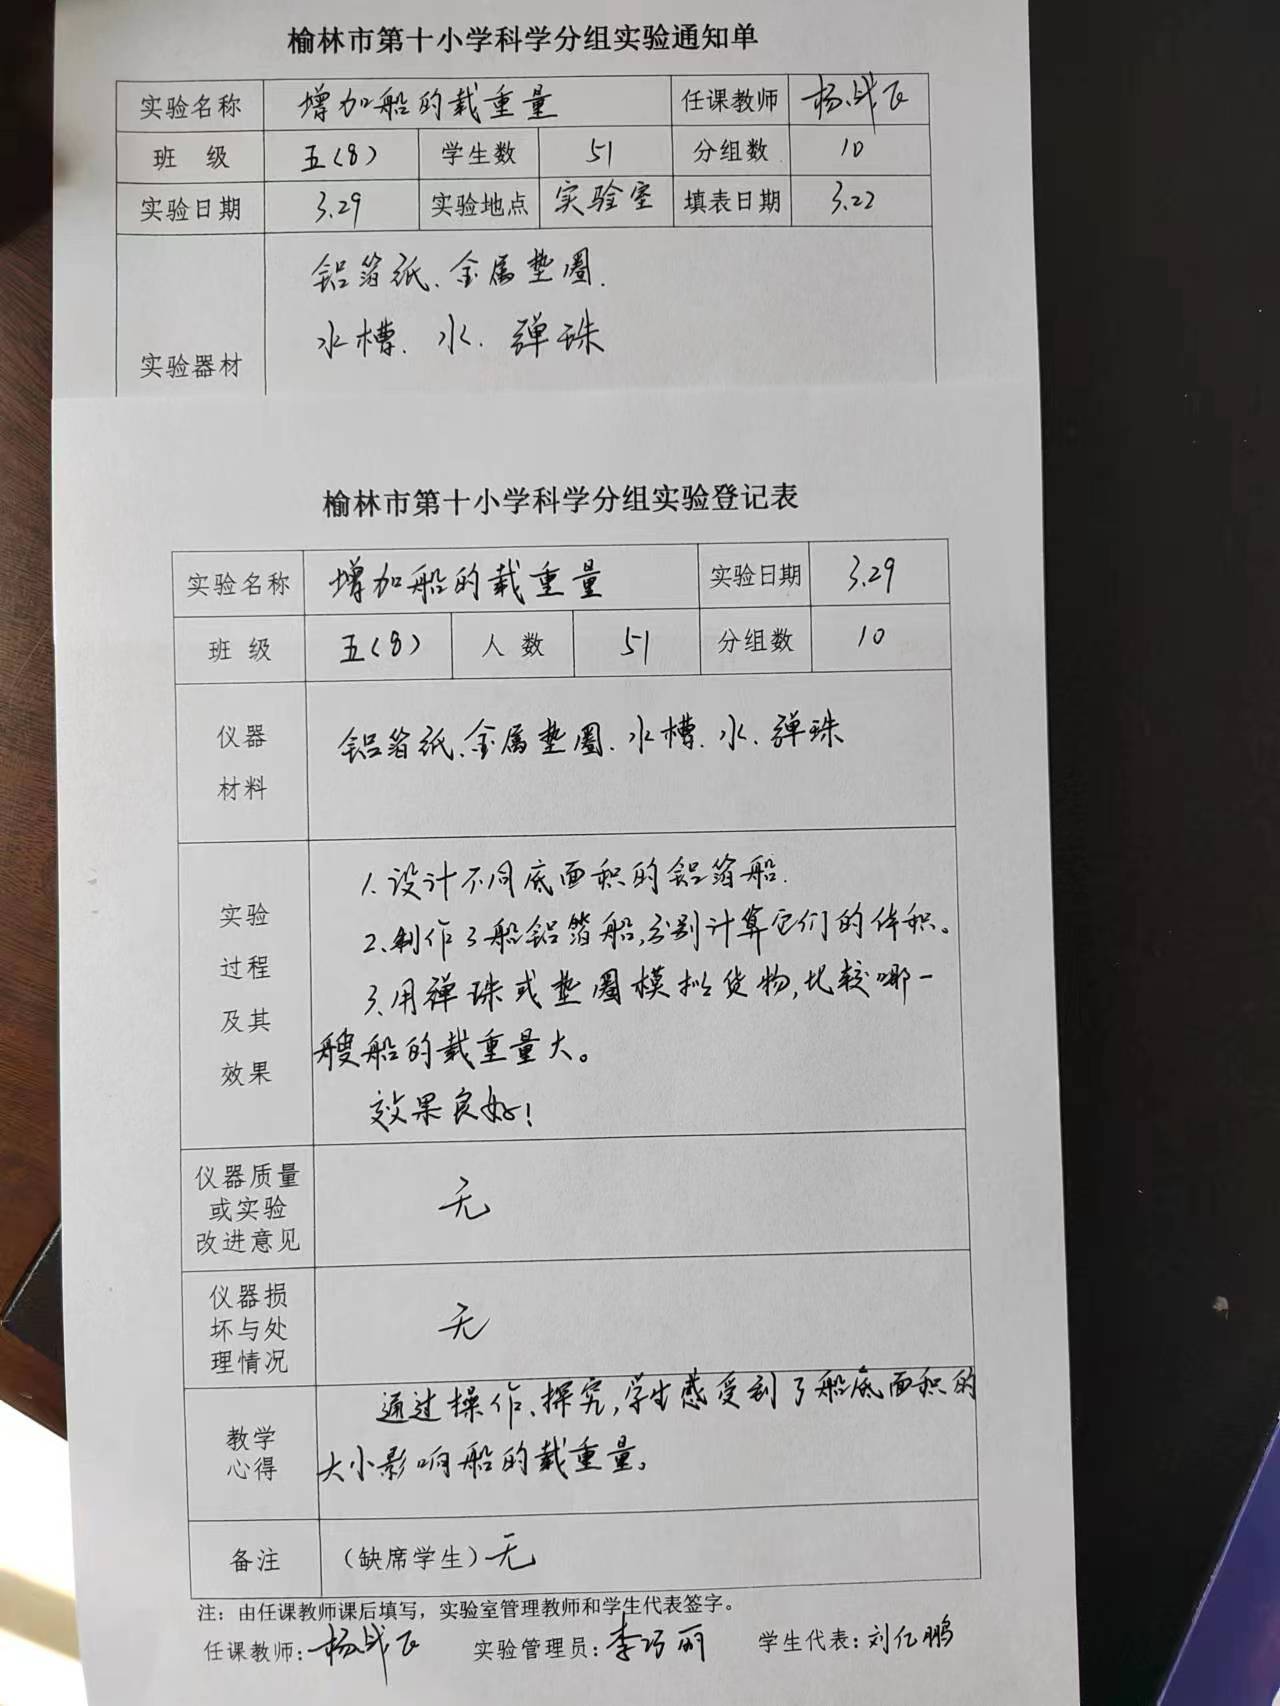 榆林市第十小学科学分组实验通知单
实验名称 增加船的载重量 任课教师 杨
班 级 五(8) 学生数 51 分组数 10
实验日期 3.29 实验地点 实验室 填表日期 3.22
铝箔纸、金属垫圈.
水槽. 水. 弹珠
实验器材
榆林市第十小学科学分组实验登记表
实验名称 增加船的载重量 实验日期 3.29
班 级 五(8) 人 数 51 分组数 10
仪器
材料
铝箔纸、金属垫圈、水槽、水、弹珠
实验
过程
及其
效果
1.设计不同底面积的铝箔船.
2.制作了船铝箔船,分别计算它们的体积。
3.用弹珠或垫圈模拟货物,比较哪一
艘船的载重量大。
效果良好!
仪器质量
或实验
改进意见
无
仪器损
坏与处
理情况
无
教学
心得
通过操作、探究,学生感受到了船底面积的
大小影响船的载重量。
备注 (缺席学生)无
注:由任课教师课后填写,实验室管理教师和学生代表签字。
任课教师:杨 实验管理员:李巧丽 学生代表:刘亿鹏